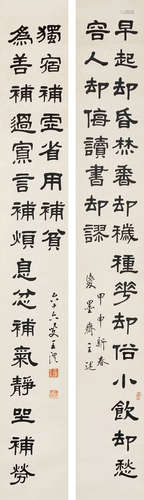 早起却昏焚香却穢種花却俗小飲却愁
容人却侮讀書却謬
甲申新春
墨齋主
為善補過寡言補煩息忿補氣靜坐補勞
獨宿補虛省用補貧
六十六叟王